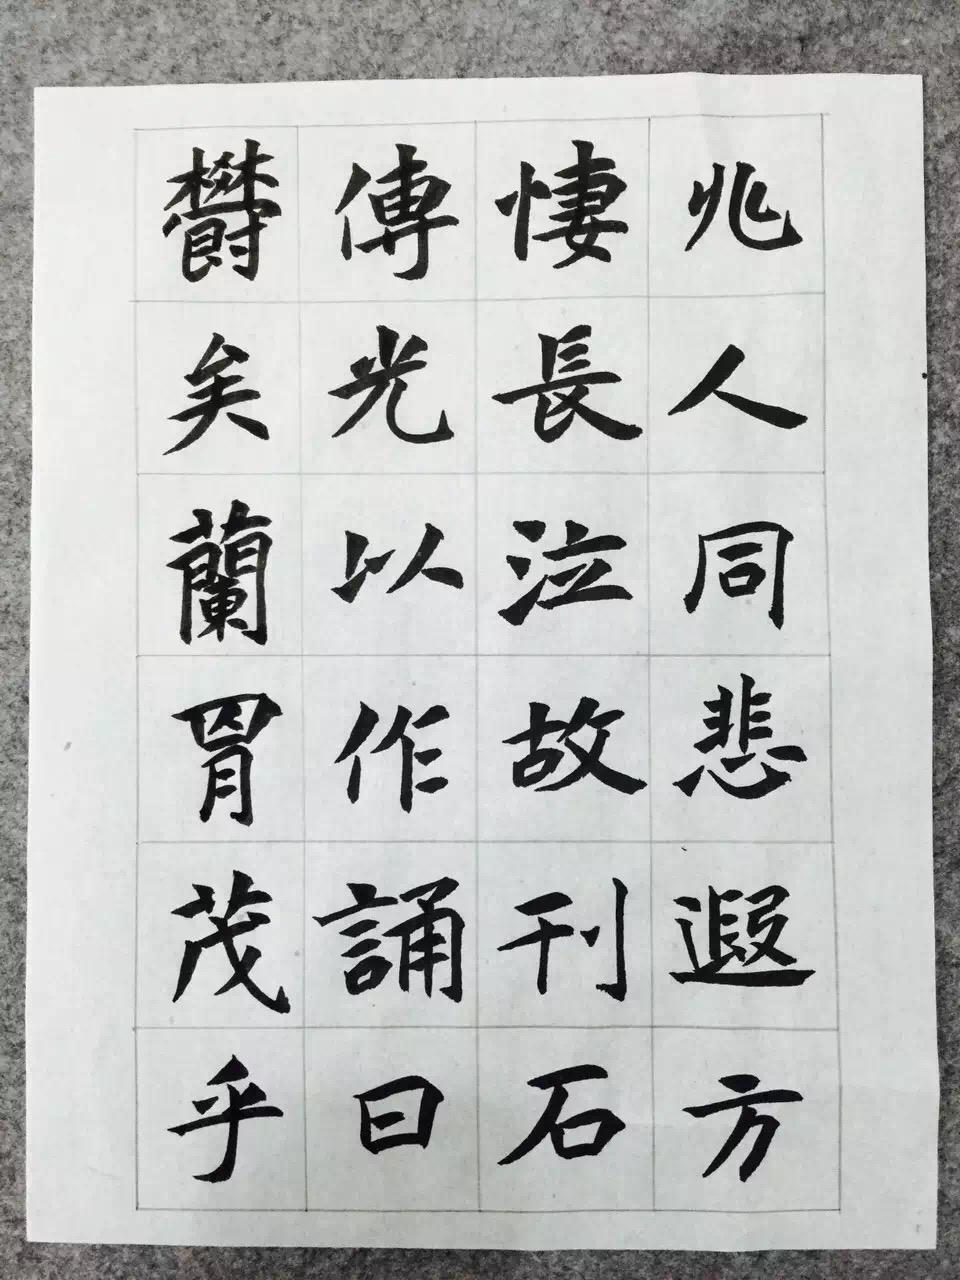 兆人同悲遐方
悽長泣故刊石
傳光以作誦曰
欝矣蘭胃茂乎